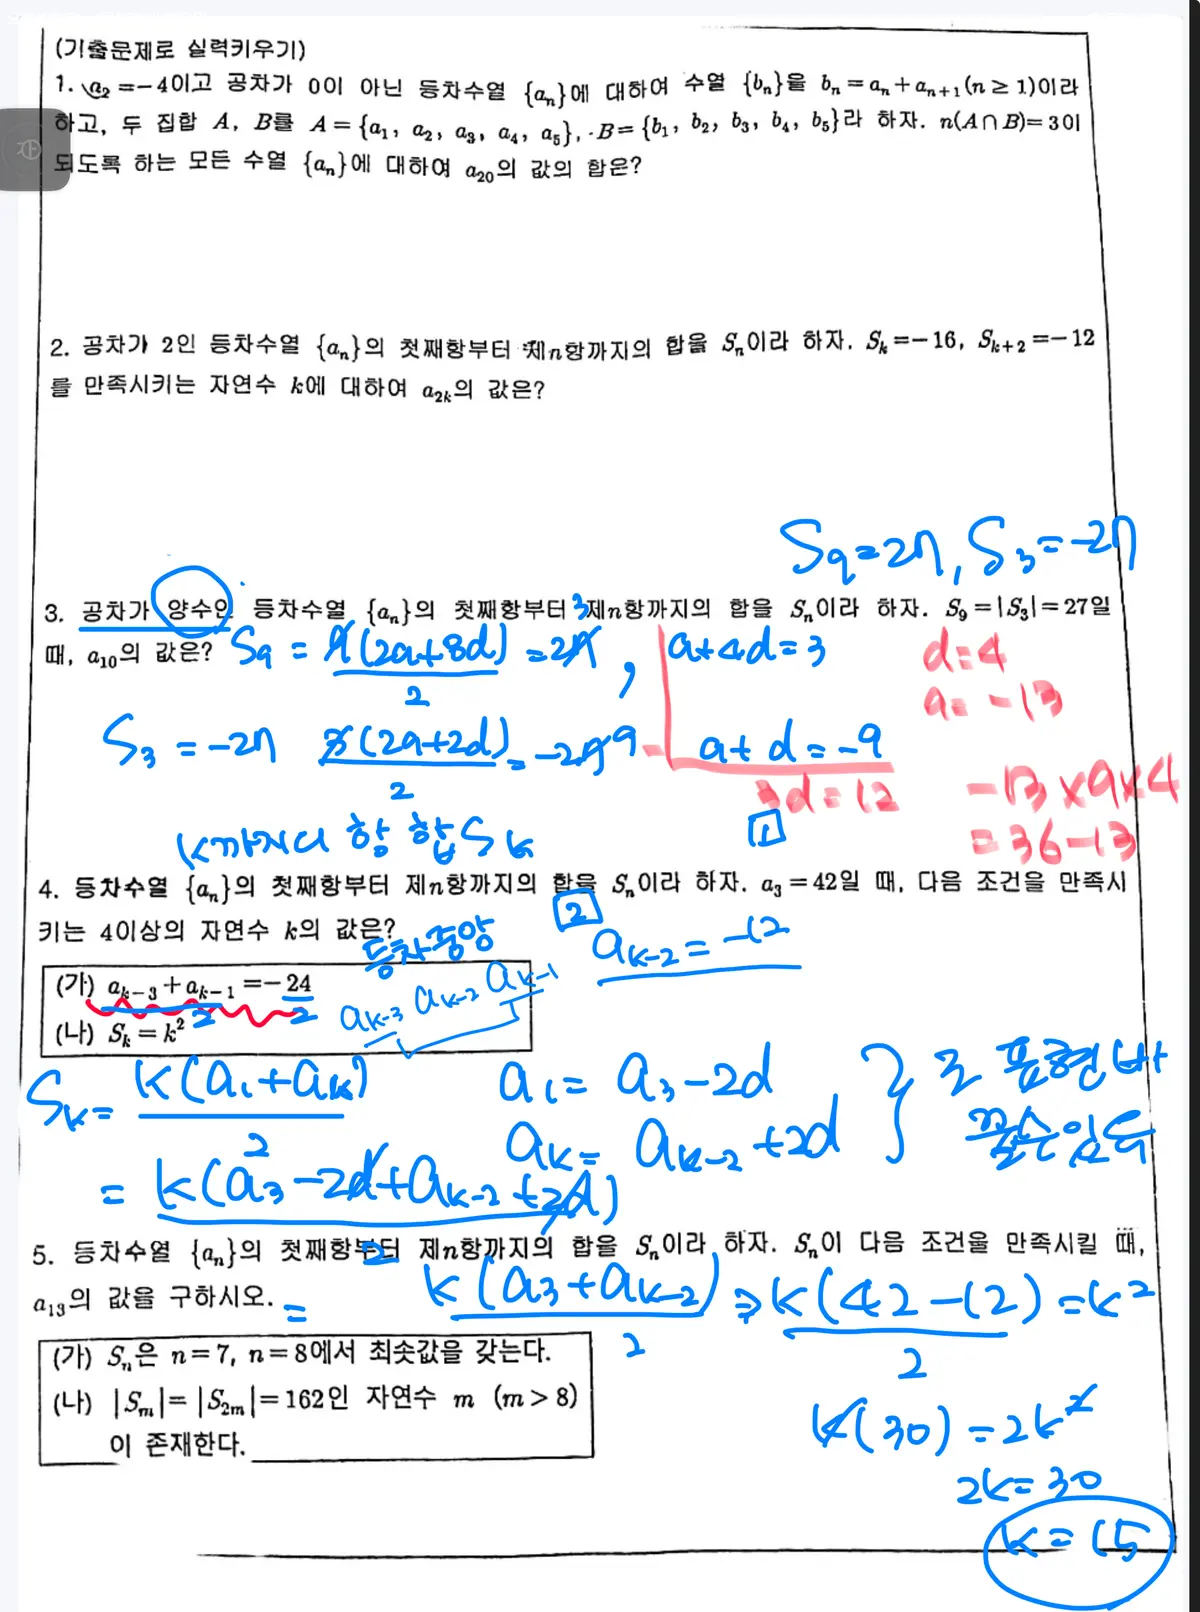 (기출문제로 실력키우기)
1. a₂=-4이고 공차가 0이 아닌 등차수열 {aₙ}에 대하여 수열 {bₙ}을 bₙ=aₙ+aₙ₊₁(n≥1)이라
하고, 두 집합 A, B를 A={a₁, a₂, a₃, a₄, a₅}, B={b₁, b₂, b₃, b₄, b₅}라 하자. n(A∩B)=3이
되도록 하는 모든 수열 {aₙ}에 대하여 a₂₀의 값의 합은?
2. 공차가 2인 등차수열 {aₙ}의 첫째항부터 제n항까지의 합을 Sₙ이라 하자. Sₖ=-16, Sₖ₊₂=-12
를 만족시키는 자연수 k에 대하여 a₂ₖ의 값은?
S₉=27, S₃=-27
3. 공차가 양수인 등차수열 {aₙ}의 첫째항부터 제n항까지의 합을 Sₙ이라 하자. S₉=|S₃|=27일
때, a₁₀의 값은?
S₉ = 9(2a+8d)/2 = 27, a+4d=3
d=4
a=-13
S₃ = -27 3(2a+2d)/2 = -27 9 - a+d=-9
3d=12
-13×9×4
=36-13
1
k까지니 항 합 Sₖ
4. 등차수열 {aₙ}의 첫째항부터 제n항까지의 합을 Sₙ이라 하자. a₃=42일 때, 다음 조건을 만족시
키는 4이상의 자연수 k의 값은?
2
등차중앙
aₖ₋₂=-12
(가) aₖ₋₃+aₖ₋₁=-24
2 2
aₖ₋₃ aₖ₋₂ aₖ₋₁
(나) Sₖ=k²
Sₖ= k(a₁+aₖ)/2
a₁= a₃-2d
aₖ= aₖ₋₂+2d
로 표현 바
꿀수있듬
= k(a₃-2d+aₖ₋₂+2d)/2
5. 등차수열 {aₙ}의 첫째항부터 제n항까지의 합을 Sₙ이라 하자. Sₙ이 다음 조건을 만족시킬 때,
a₁₃의 값을 구하시오.
= k(a₃+aₖ₋₂)/2 ⇒ k(42-12)/2 = k²
(가) Sₙ은 n=7, n=8에서 최솟값을 갖는다.
(나) |Sₘ|=|S₂ₘ|=162인 자연수 m (m>8)
이 존재한다.
k(30)=2k²
2k=30
k=15